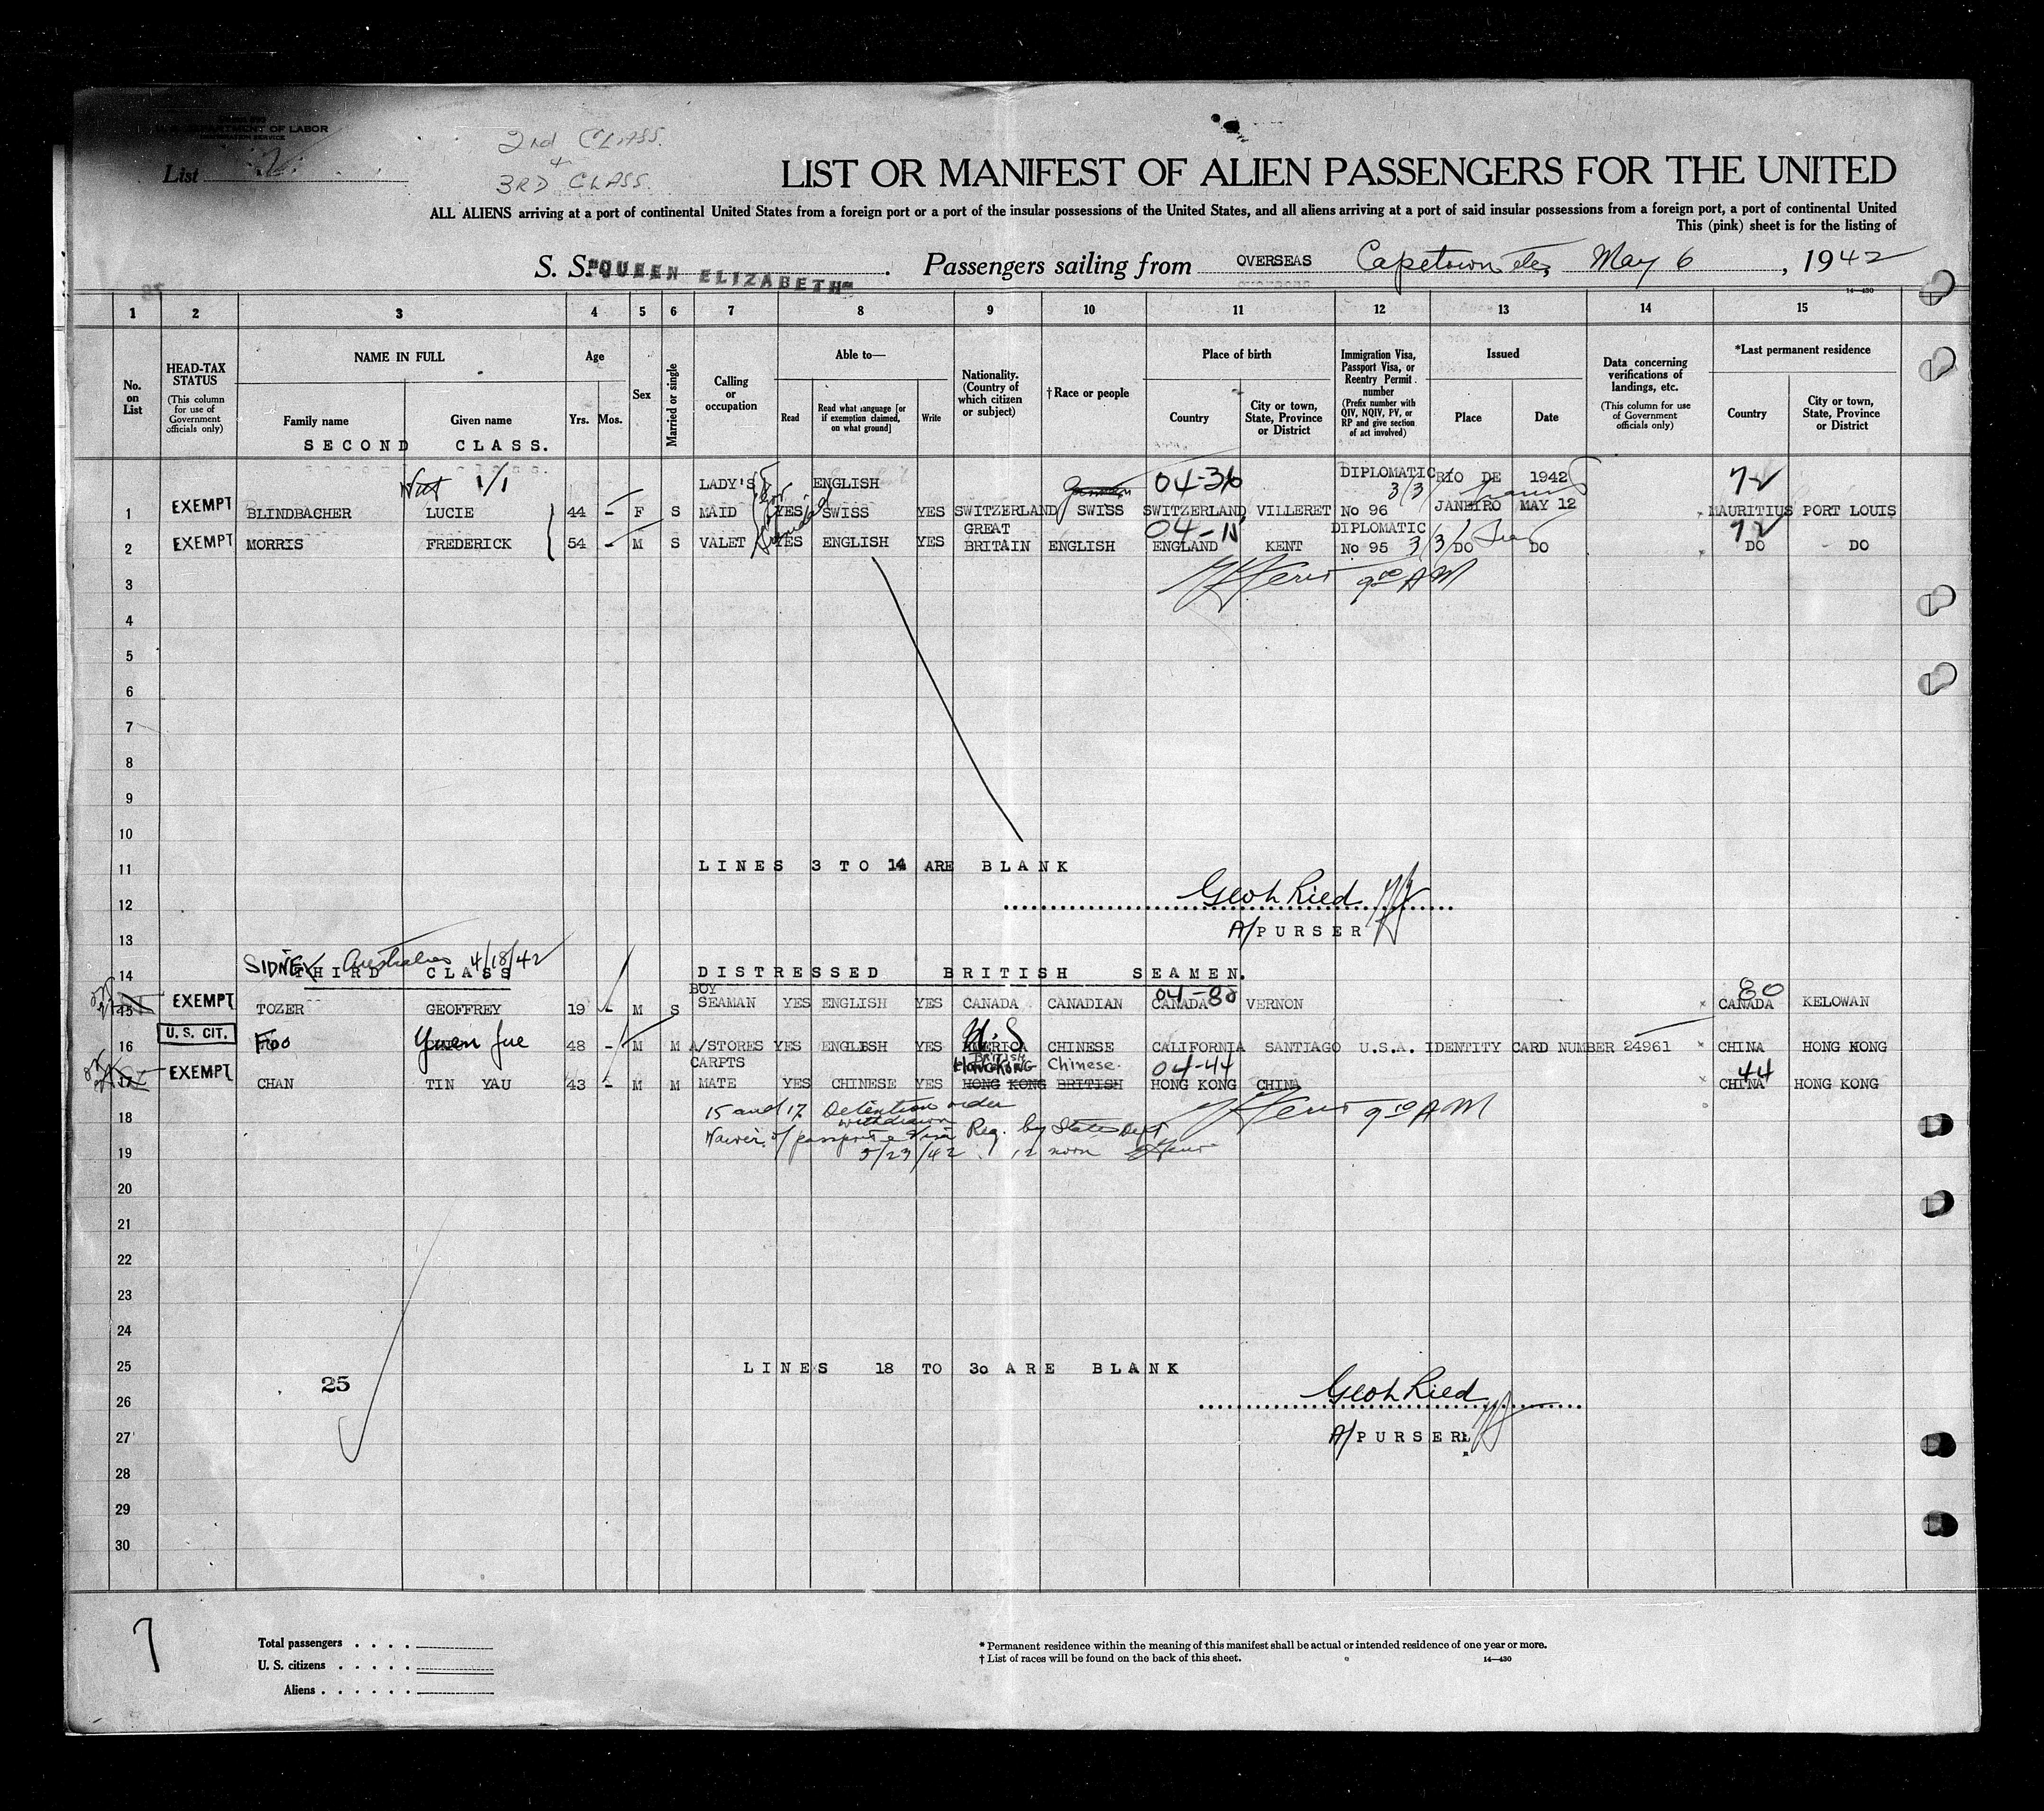 DEPARTMENT OF LABOR
List 2
2nd CLASS.
+
3RD CLASS.
LIST OR MANIFEST OF ALIEN PASSENGERS FOR THE UNITED
ALL ALIENS arriving at a port of continental United States from a foreign port or a port of the insular possessions of the United States, and all aliens arriving at a port of said insular possessions from a foreign port, a port of continental United
This (pink) sheet is for the listing of
S. S. "QUEEN ELIZABETH" Passengers sailing from OVERSEAS Capetown etc, May 6, 1942
14—430
1 2 3 4 5 6 7 8 9 10 11 12 13 14 15
No. on List
HEAD-TAX STATUS (This column for use of Government officials only)
NAME IN FULL
Family name Given name
Age
Yrs. Mos.
Sex
Married or single
Calling or occupation
Able to—
Read
Read what language [or if exemption claimed, on what ground]
Write
Nationality. (Country of which citizen or subject)
†Race or people
Place of birth
Country
City or town, State, Province or District
Immigration Visa, Passport Visa, or Reentry Permit number (Prefix number with QIV, NQIV, PV, or RP and give section of act involved)
Issued
Place Date
Data concerning verifications of landings, etc. (This column for use of Government officials only)
*Last permanent residence
Country
City or town, State, Province or District
SECOND CLASS.
1/1 LADY'S ENGLISH 04-36 DIPLOMATIC RIO DE 1942 72
3/3
1 EXEMPT BLINDBACHER LUCIE 44 - F S MAID YES SWISS YES SWITZERLAND SWISS SWITZERLAND VILLERET No 96 JANEIRO MAY 12 MAURITIUS PORT LOUIS
GREAT 04-15 DIPLOMATIC 72
2 EXEMPT MORRIS FREDERICK 54 - M S VALET YES ENGLISH YES BRITAIN ENGLISH ENGLAND KENT No 95 3/3 DO DO DO DO
3 9 00 AM
4
5
6
7
8
9
10
11 LINES 3 TO 14 ARE BLANK
12 Geo L Ried
A/PURSER
13
SIDNEY Australia 4/18/42
14 THIRD CLASS DISTRESSED BRITISH SEAMEN.
BOY 04-80 80
15 EXEMPT TOZER GEOFFREY 19 - M S SEAMAN YES ENGLISH YES CANADA CANADIAN CANADA VERNON CANADA KELOWAN
U.S. CIT. U.S
16 Foo Yuen Jue 48 - M M A/STORES YES ENGLISH YES AMERICA CHINESE CALIFORNIA SANTIAGO U.S.A. IDENTITY CARD NUMBER 24961 CHINA HONG KONG
CARPTS BRITISH HONG KONG Chinese. 04-44 44
17 EXEMPT CHAN TIN YAU 43 - M M MATE YES CHINESE YES HONG KONG BRITISH HONG KONG CHINA CHINA HONG KONG
15 and 17 Detention order
withdrawn 9 10 AM
18
Waiver of passport & visa Req. by State Dept
5/23/42 12 noon
19
20
21
22
23
24
25 LINES 18 TO 30 ARE BLANK
25
26 Geo L Ried
27 A/PURSER
28
29
30
7
Total passengers
U. S. citizens
Aliens
* Permanent residence within the meaning of this manifest shall be actual or intended residence of one year or more.
† List of races will be found on the back of this sheet.
14—430